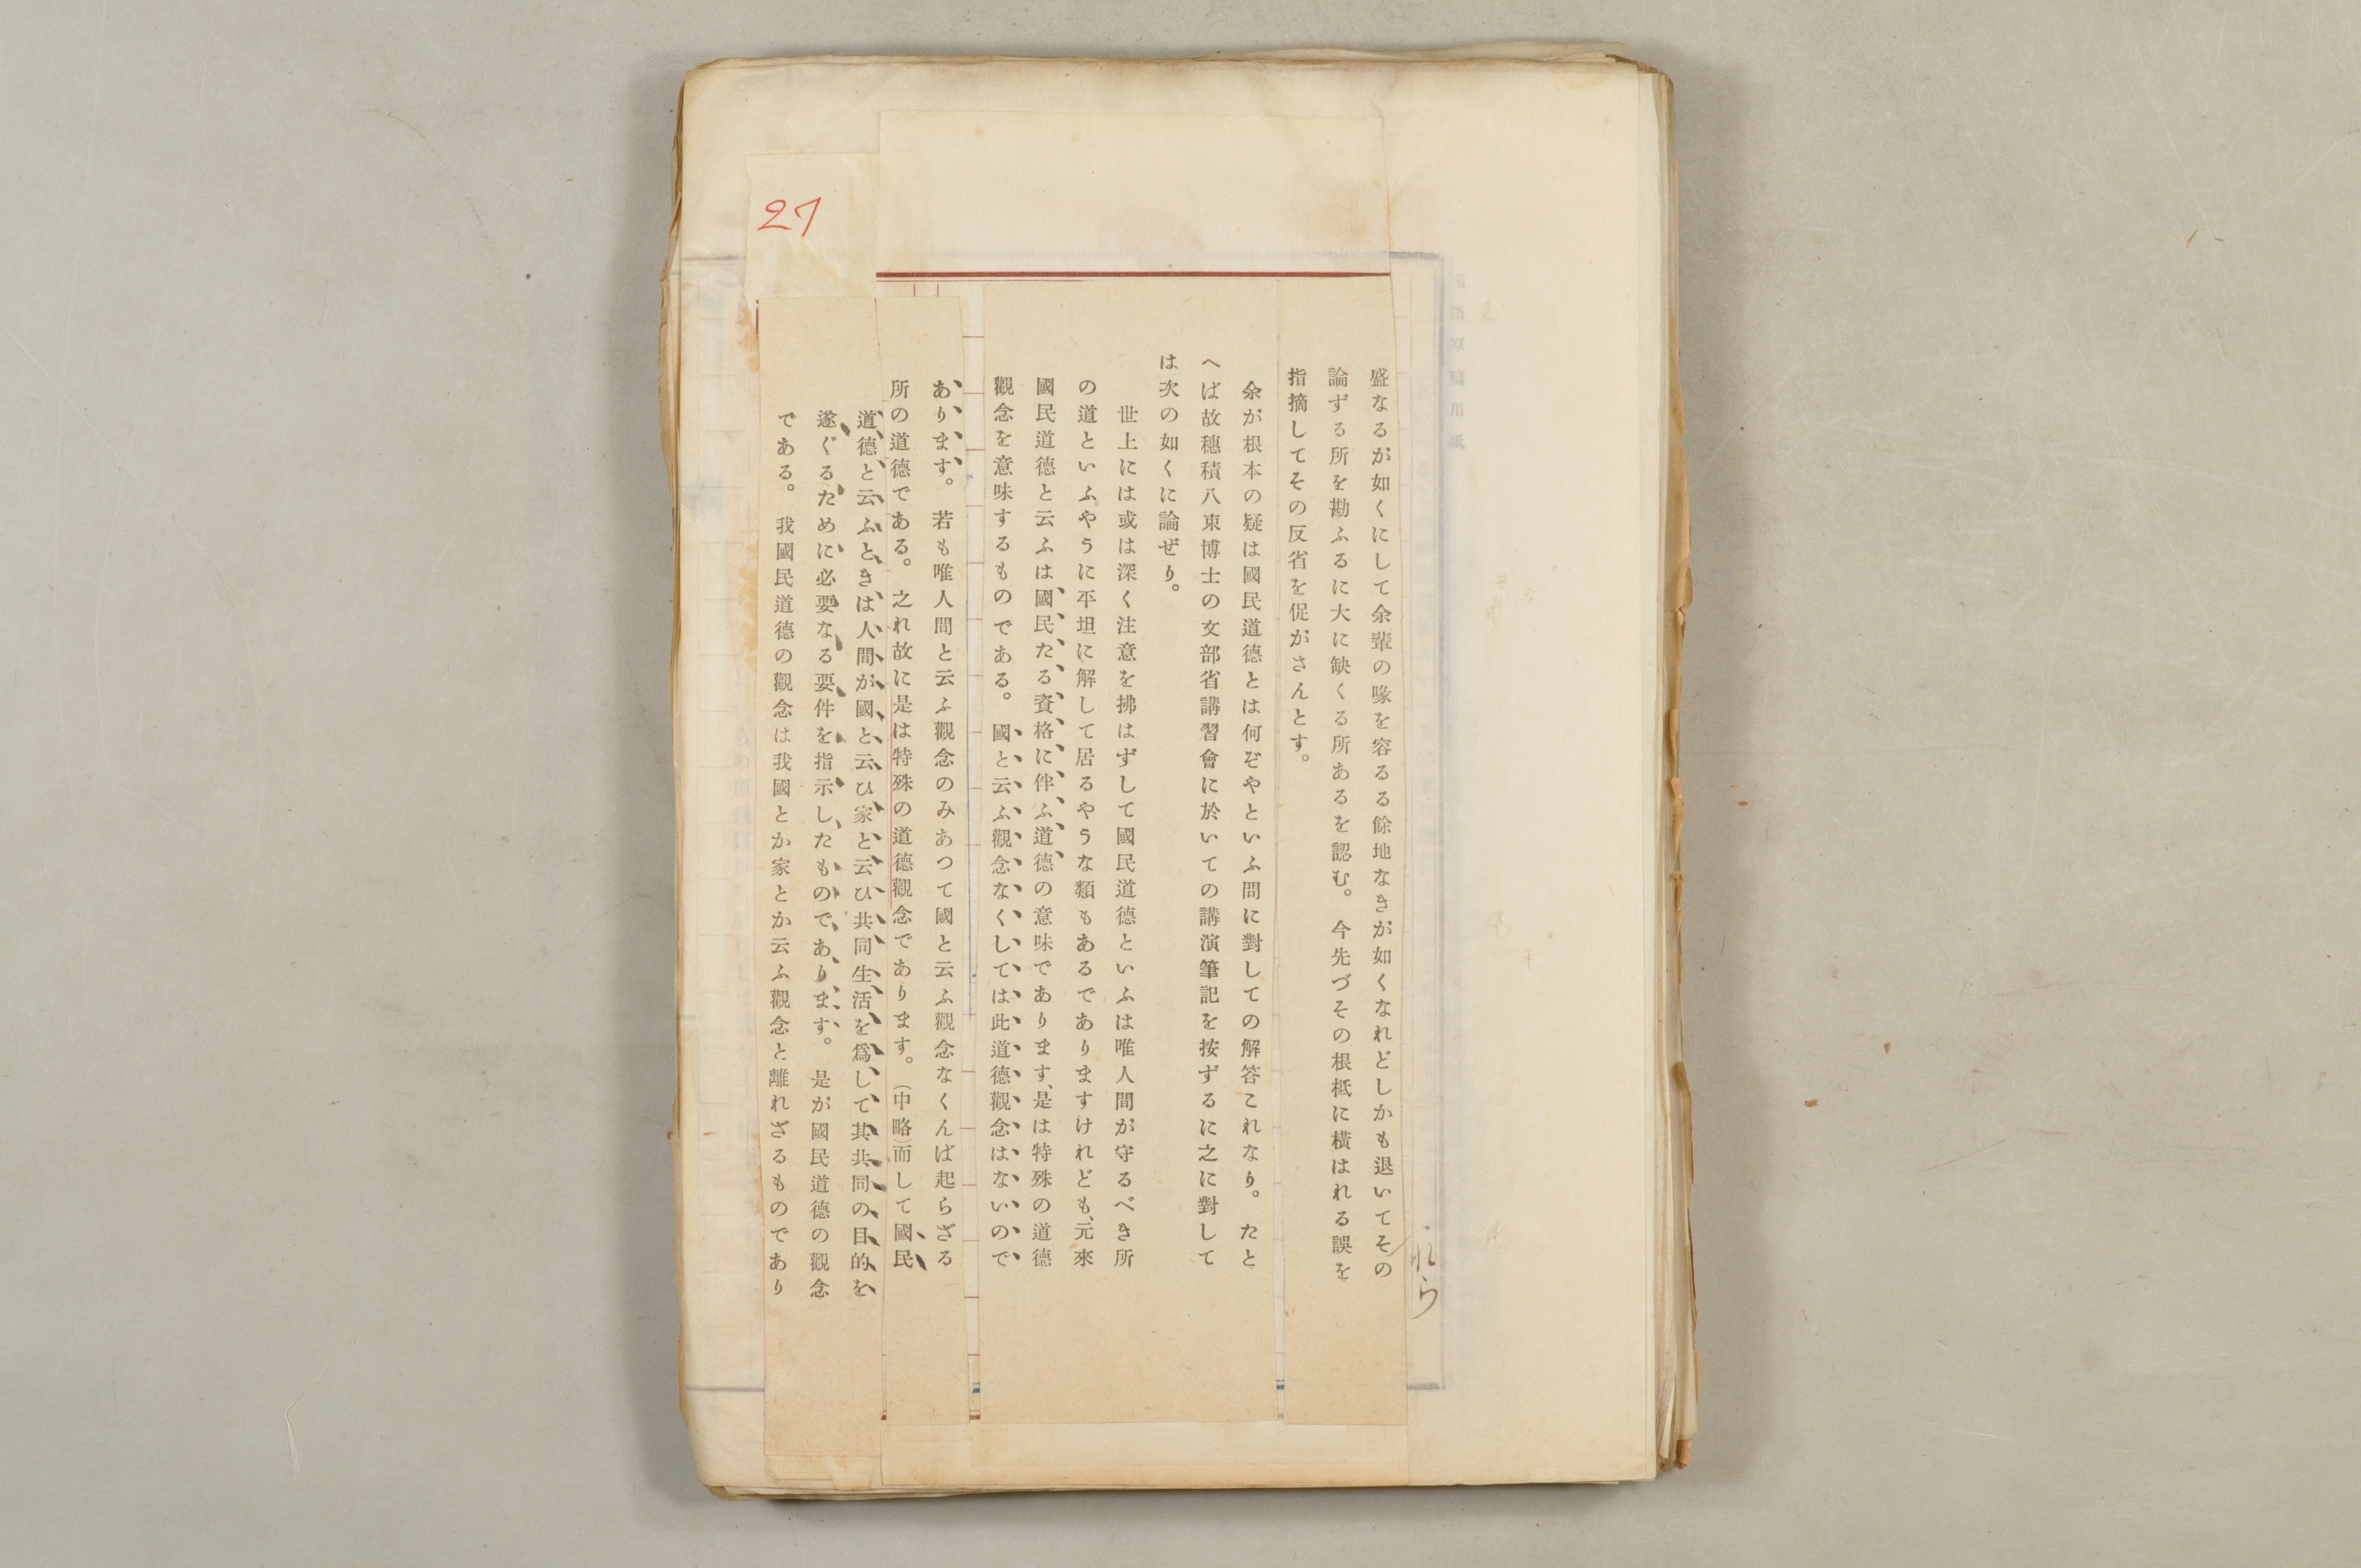 27
盛なるが如くにして余輩の喙を容るる餘地なきが如くなれどしかも退いてその
論ずる所を勘ふるに大に缺くる所あるを認む。今先づその根柢に橫はれる誤を
指摘してその反省を促がさんとす。
余が根本の疑は國民道德とは何ぞやといふ問に對しての解答これなり。たと
へば故穗積八束博士の文部省講習會に於いての講演筆記を按ずるに之に對して
は次の如くに論ぜり。
世上には或は深く注意を拂はずして國民道德といふは唯人間が守るべき所
の道といふやうに平坦に解して居るやうな類もあるでありますけれども、元來
國民道德と云ふは國民たる資格に伴ふ道德の意味であります、是は特殊の道德
觀念を意味するものである。國と云ふ觀念なくしては此道德觀念はないので
あります。若も唯人間と云ふ觀念のみあつて國と云ふ觀念なくんば起らざる
所の道德である。之れ故に是は特殊の道德觀念であります。（中略）而して國民
道德と云ふときは人間が國と云ひ家と云ひ共同生活を爲して其共同の目的を
遂ぐるために必要なる要件を指示したものであります。是が國民道德の觀念
である。我國民道德の觀念は我國とか家とか云ふ觀念と離れざるものであり